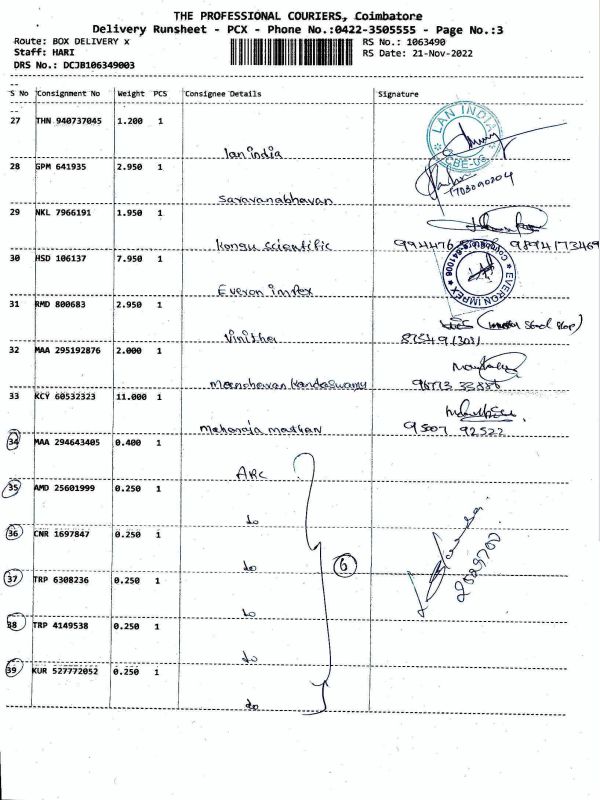 THE PROFESSIONAL COURIERS, Coimbatore
Delivery Runsheet - PCX - Phone No.:0422-3505555 - Page No.:3
Route: BOX DELIVERY x RS No.: 1063490
Staff: HARI RS Date: 21-Nov-2022
DRS No.: DCJB106349003
S No Consignment No Weight PCS Consignee Details Signature
27 THN 940737045 1.200 1
lan india
LAN INDIA
CBE-03
28 GPM 641935 2.950 1
saravanabhavan
29 NKL 7966191 1.950 1
Kongu scientific 9894173469
30 HSD 106137 7.950 1
Everon impex
EVERON IMPEX
31 RMD 800683 2.950 1
Vinitha
32 MAA 295192876 2.000 1
33 KCY 60532323 11.000 1
9507 92522
34 MAA 294643405 0.400 1
ARC
35 AMD 25601999 0.250 1
do
36 CNR 1697847 0.250 1
do
6
37 TRP 6308236 0.250 1
do
38 TRP 4149538 0.250 1
do
39 KUR 527772052 0.250 1
do